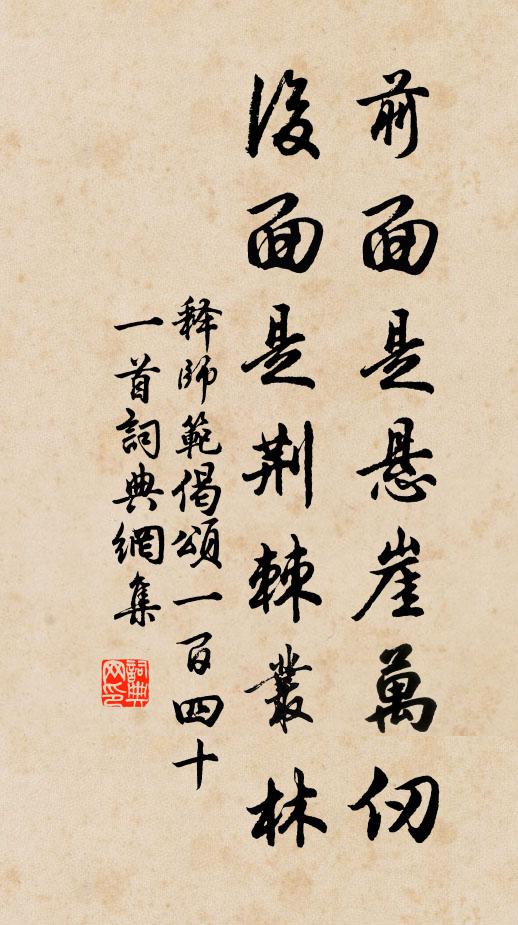 前面是悬崖萬仞
後面是荆棘叢林
释師範偈頌一百四十
一首詞典網集
詞典网印